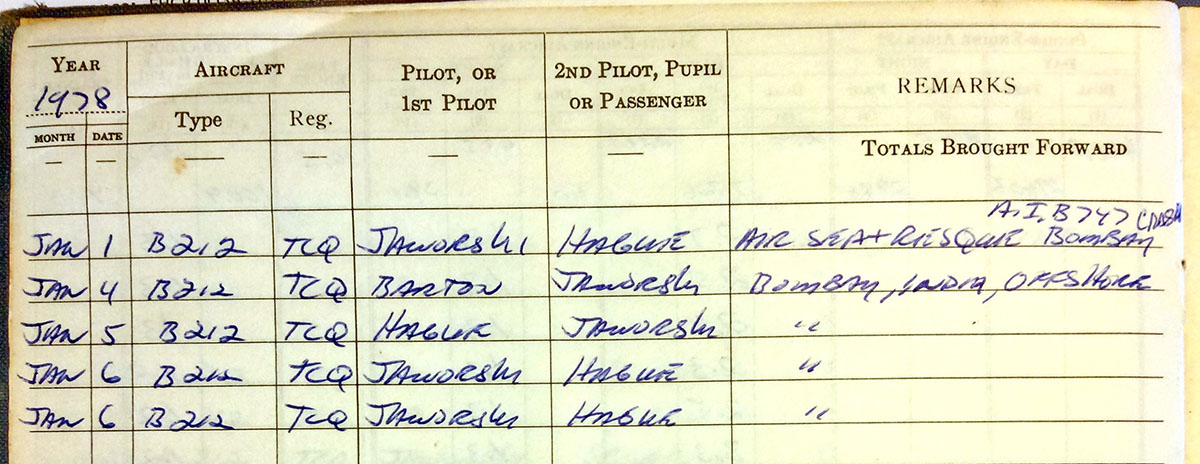 YEAR AIRCRAFT PILOT, OR 2ND PILOT, PUPIL REMARKS
1978 1ST PILOT OR PASSENGER
MONTH DATE Type Reg.
— — — — — — TOTALS BROUGHT FORWARD
A.I. B747 CRASH
JAN 1 B212 TCQ JAWORSKI HAGUE AIR SEA + RESQUE BOMBAY
JAN 4 B212 TCQ BARTON JAWORSKI BOMBAY, INDIA, OFFSHORE
JAN 5 B212 TCQ HAGUE JAWORSKI "
JAN 6 B212 TCQ JAWORSKI HAGUE "
JAN 6 B212 TCQ JAWORSKI HAGUE "